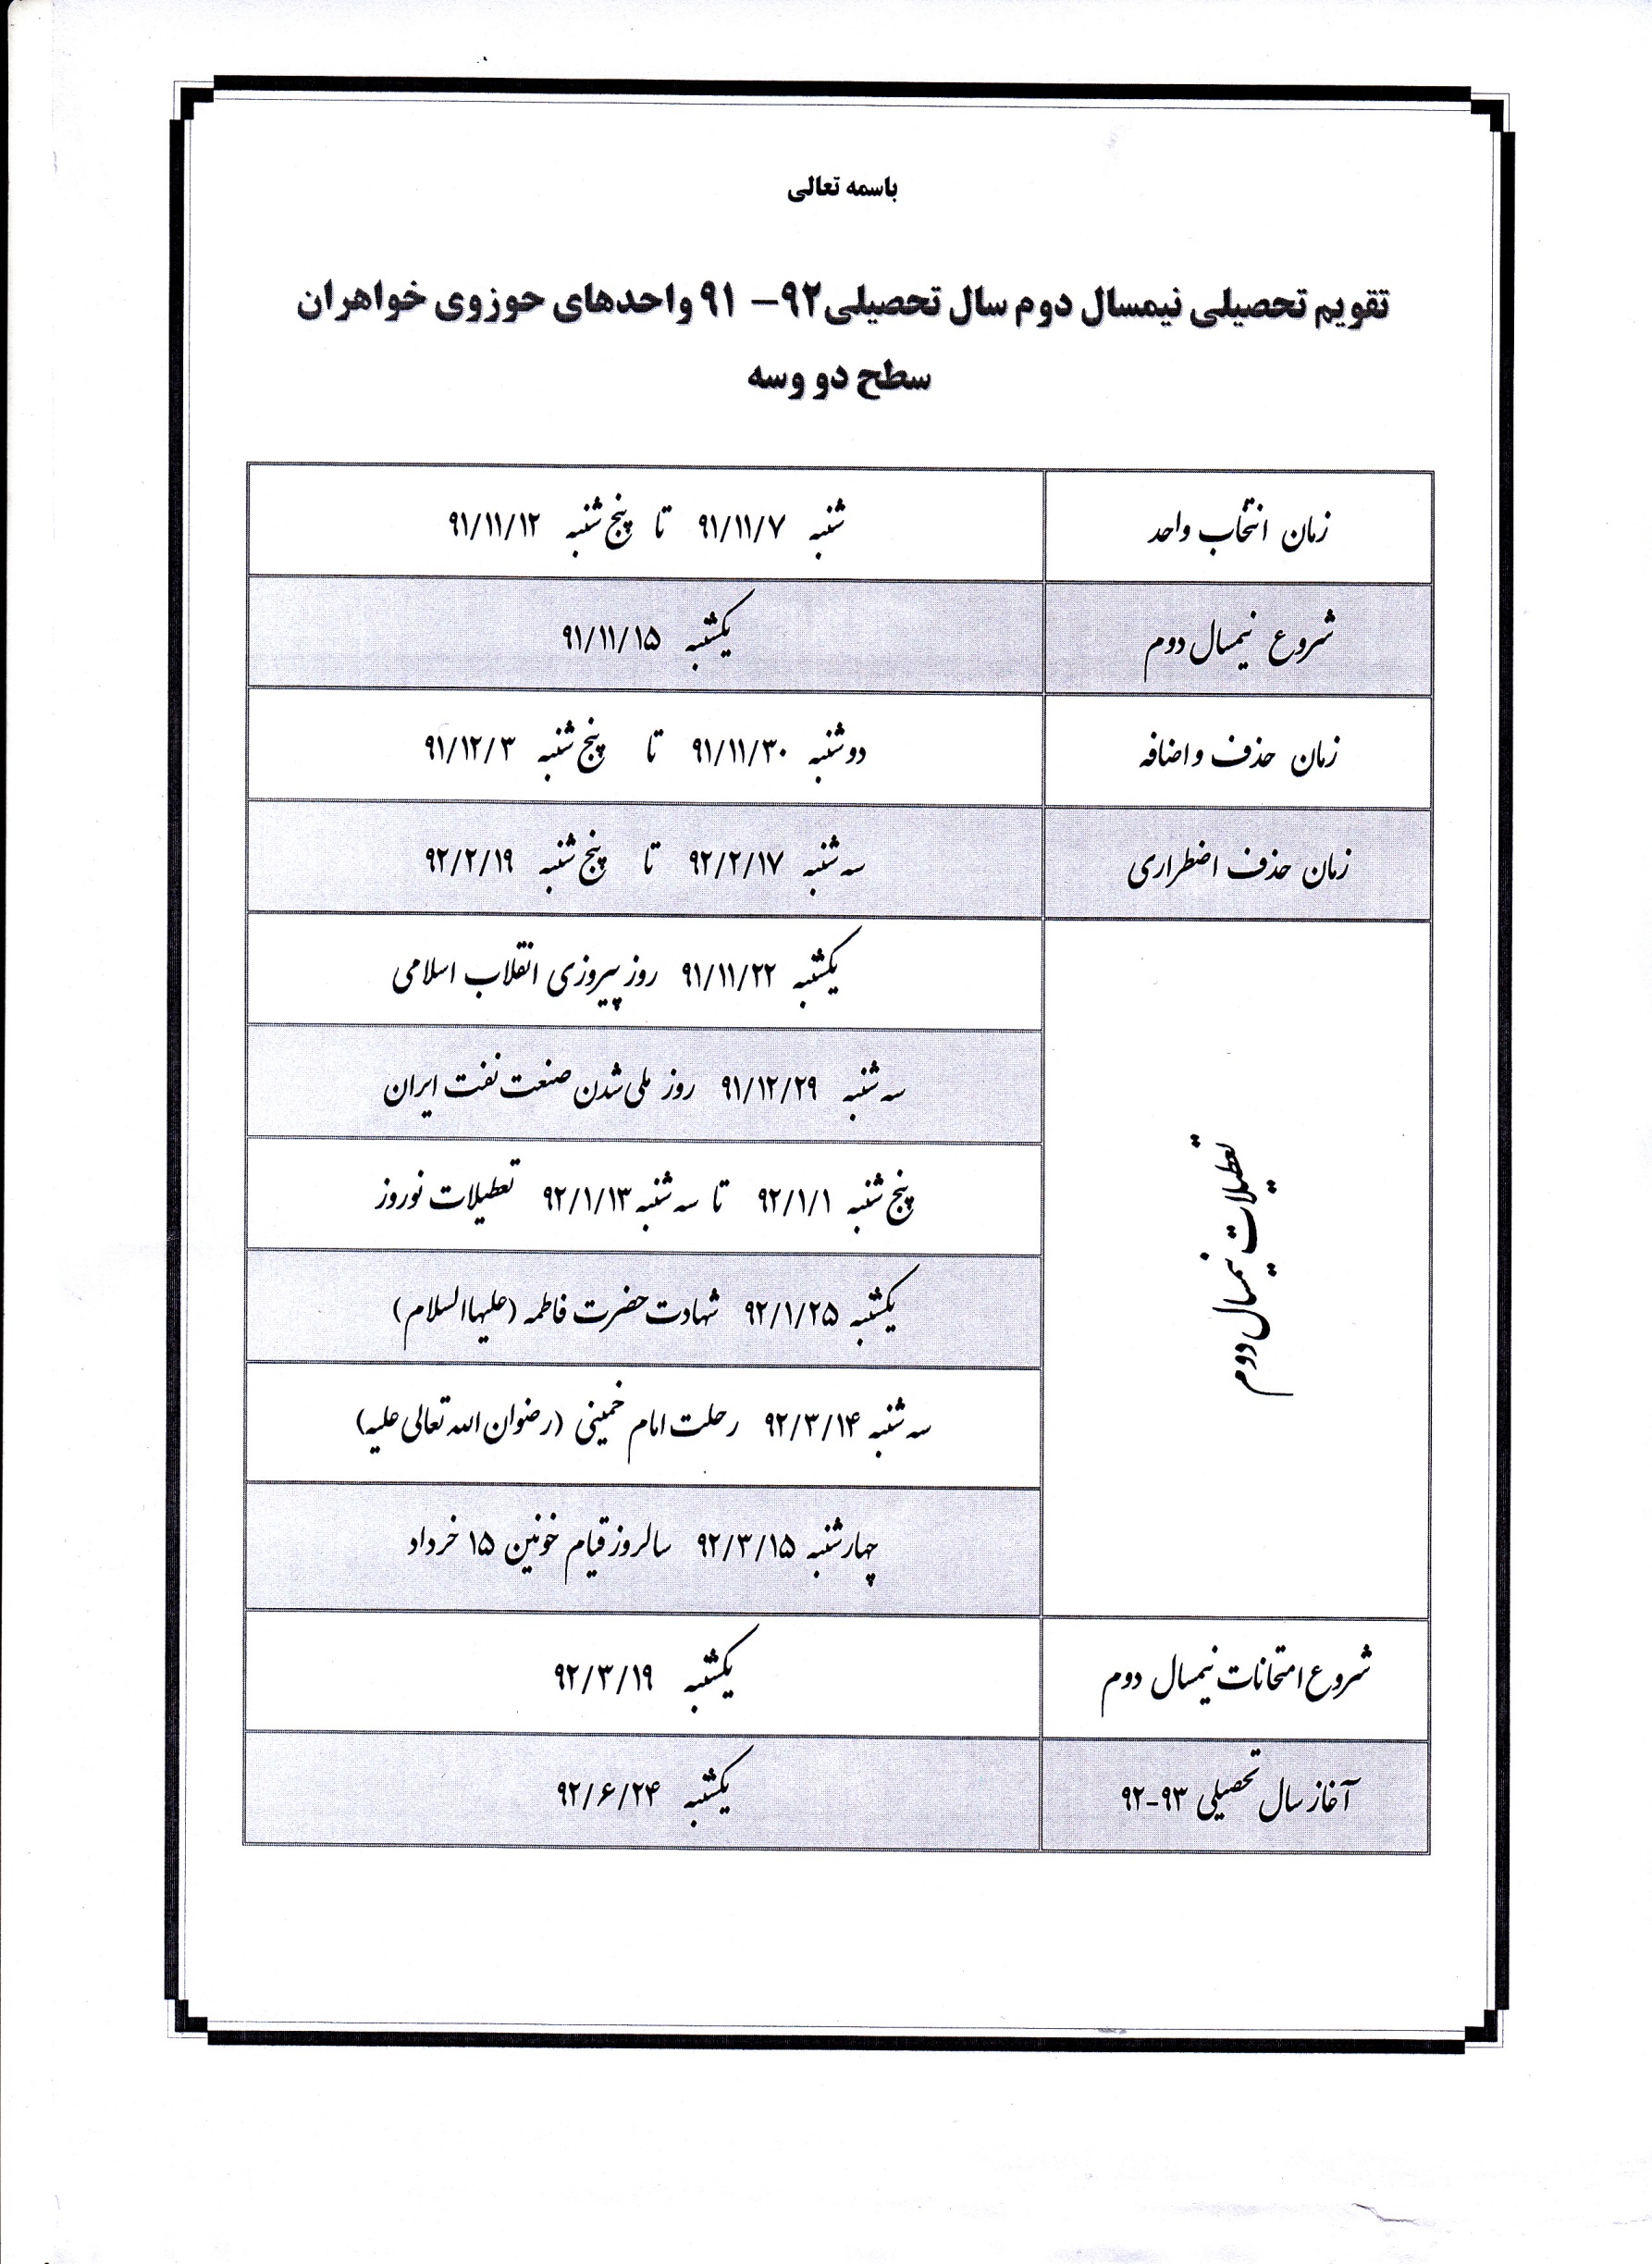 باسمه تعالی
تقویم تحصیلی نیمسال دوم سال تحصیلی۹۲- ۹۱ واحدهای حوزوی خواهران
سطح دو وسه
زمان انتخاب واحد
شنبه ۹۱/۱۱/۷ تا پنج شنبه ۹۱/۱۱/۱۲
شروع نیمسال دوم
یکشنبه ۹۱/۱۱/۱۵
زمان حذف و اضافه
دوشنبه ۹۱/۱۱/۳۰ تا پنج شنبه ۹۱/۱۲/۳
زمان حذف اضطراری
سه شنبه ۹۲/۲/۱۷ تا پنج شنبه ۹۲/۲/۱۹
تعطیلات نیمسال دوم
یکشنبه ۹۱/۱۱/۲۲ روز پیروزی انقلاب اسلامی
سه شنبه ۹۱/۱۲/۲۹ روز ملی شدن صنعت نفت ایران
پنج شنبه ۹۲/۱/۱ تا سه شنبه ۹۲/۱/۱۳ تعطیلات نوروز
یکشنبه ۹۲/۱/۲۵ شهادت حضرت فاطمه (علیهاالسلام)
سه شنبه ۹۲/۳/۱۴ رحلت امام خمینی (رضوان الله تعالی علیه)
چهارشنبه ۹۲/۳/۱۵ سالروز قیام خونین ۱۵ خرداد
شروع امتحانات نیمسال دوم
یکشنبه ۹۲/۳/۱۹
آغاز سال تحصیلی ۹۳-۹۲
یکشنبه ۹۲/۶/۲۴